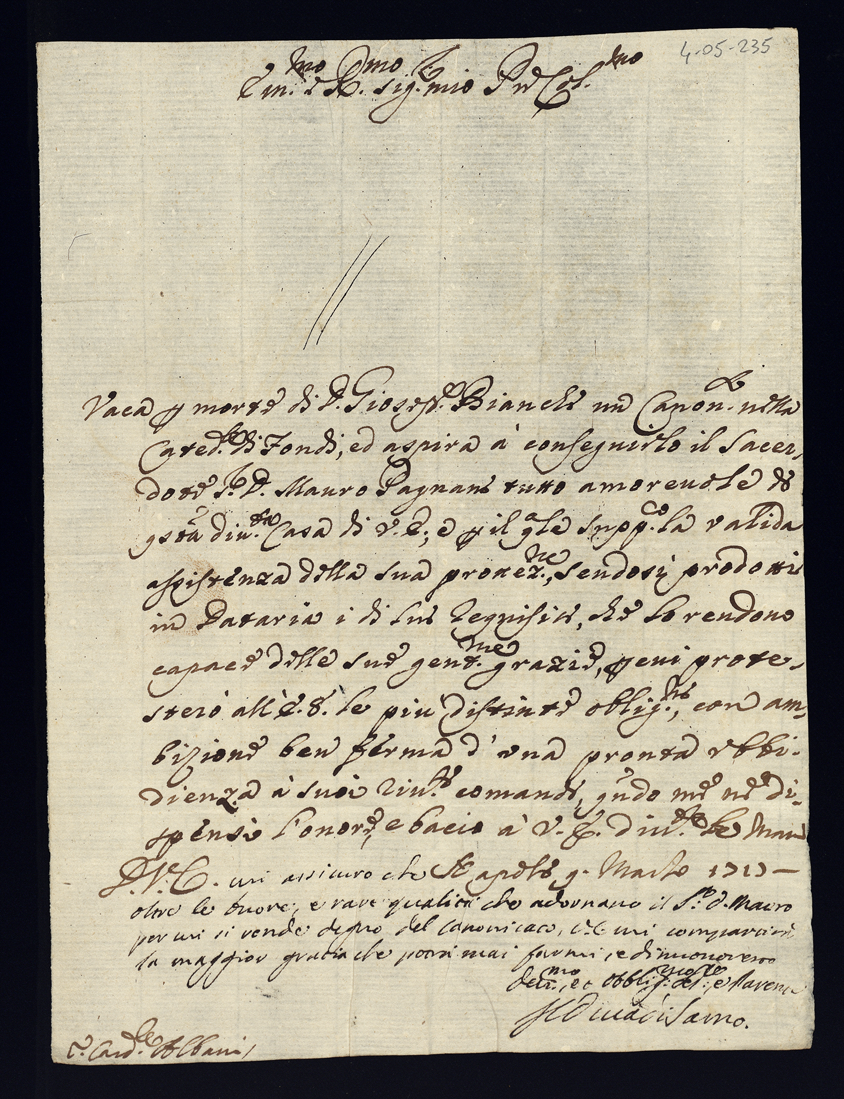 4-05-235
Em.mo e R.mo Sig.re mio P.ne Col.mo
Vaca p morte di D. Gioseppe Bianchi un Canon.to nella
Cated.le di Fondi, ed aspira à conseguirlo il Sacer-
dote S.r D. Mauro Pagnani tutto amorevole di
qsta div.ma Casa di V.E; e p il qle supp.co la valida
assistenza della sua protez.ne, sendosi prodotti
in Dataria i di lui requisiti, che lo rendono
capace delle sue gent.me grazie, p cui prote-
sterò all'E.S. le più distinte oblig.ni, con am-
bizione ben ferma d'una pronta ubbi-
dienza à suoi riv.ti comandi, qndo me ne di-
spensi l'onore, e bacio à V.E. div.te le mani
Napoli 9 Marzo 1717
D. V. E. mi assicuro che
oltre le buone, e rare qualità che adornano il S.r D. Mauro
per cui si rende degno del canonicato, V.E. mi compartirà
la maggior gratia che potrà mai farmi, e di nuovo resto
Dev.mo, et obblig.mo ser.re, e
Il Duca di Sarno.
S. Card.le Albani